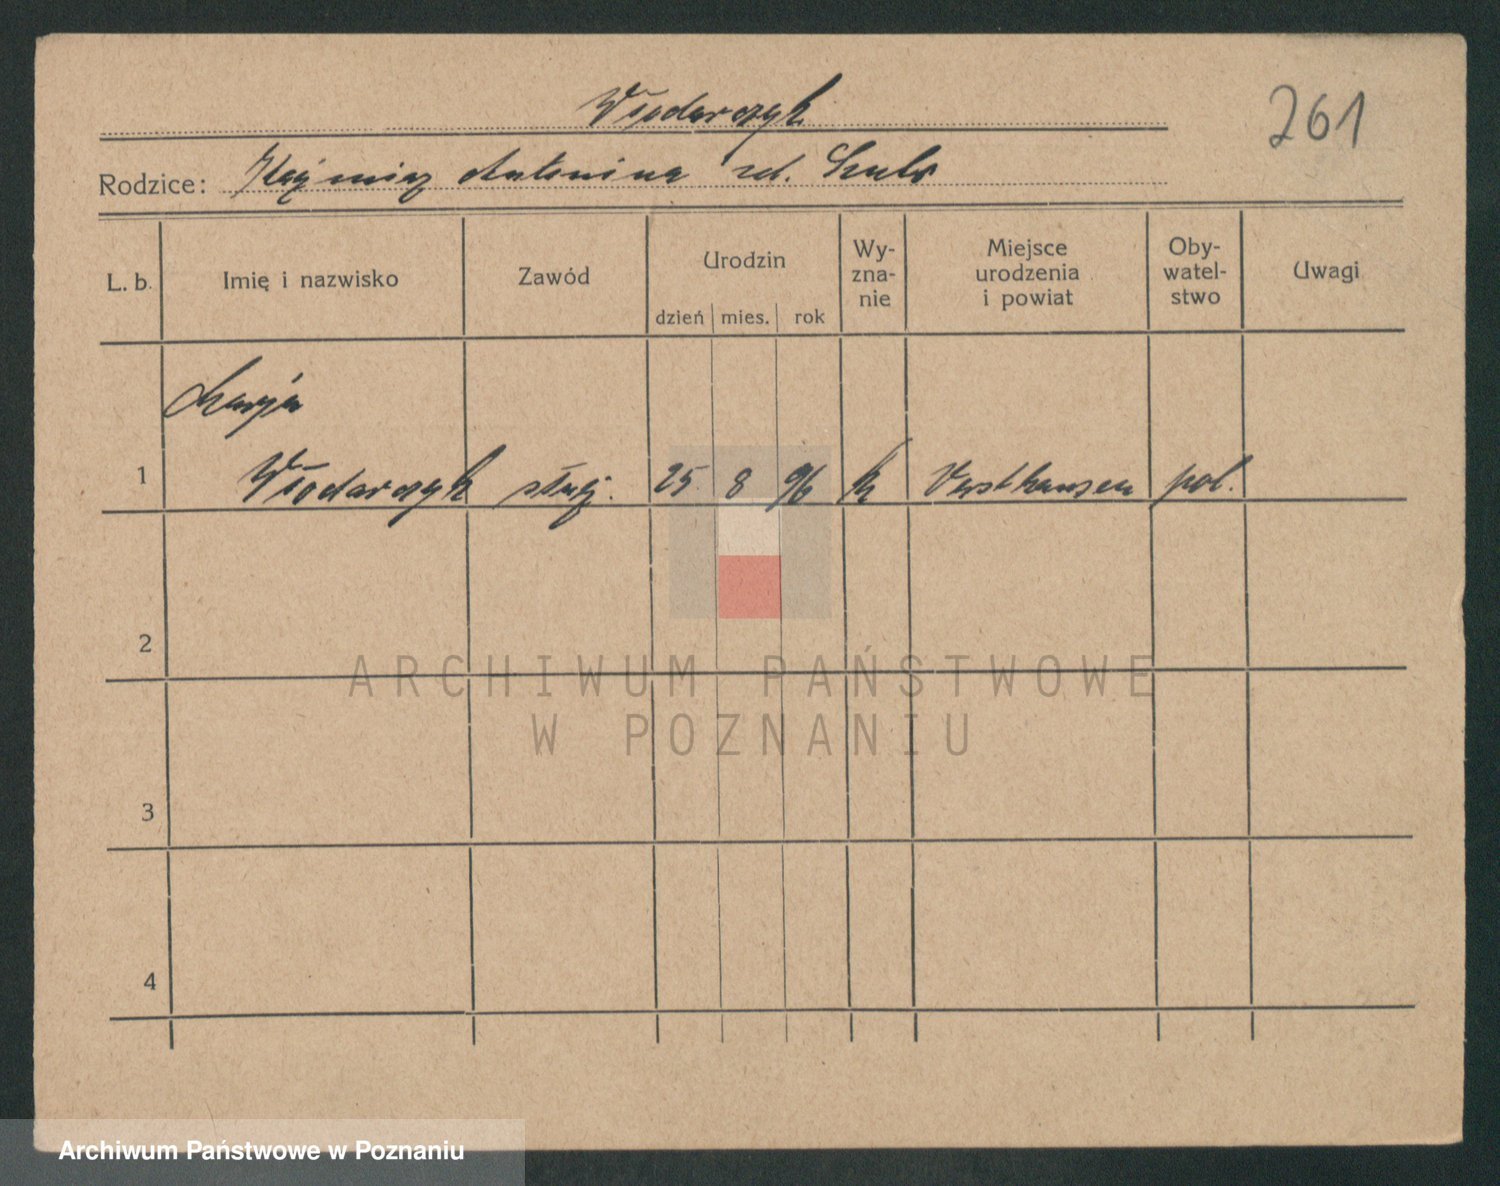 Włodarczyk
261
Rodzice: Kaźmierz Antonina zd. Szulc
L. b. Imię i nazwisko Zawód Urodzin dzień mies. rok Wy-zna-nie Miejsce urodzenia i powiat Oby-watel-stwo Uwagi
Marja
1 Włodarczyk służ. 25 8 96 k pol.
2
ARCHIWUM PAŃSTWOWE
W POZNANIU
3
4
Archiwum Państwowe w Poznaniu